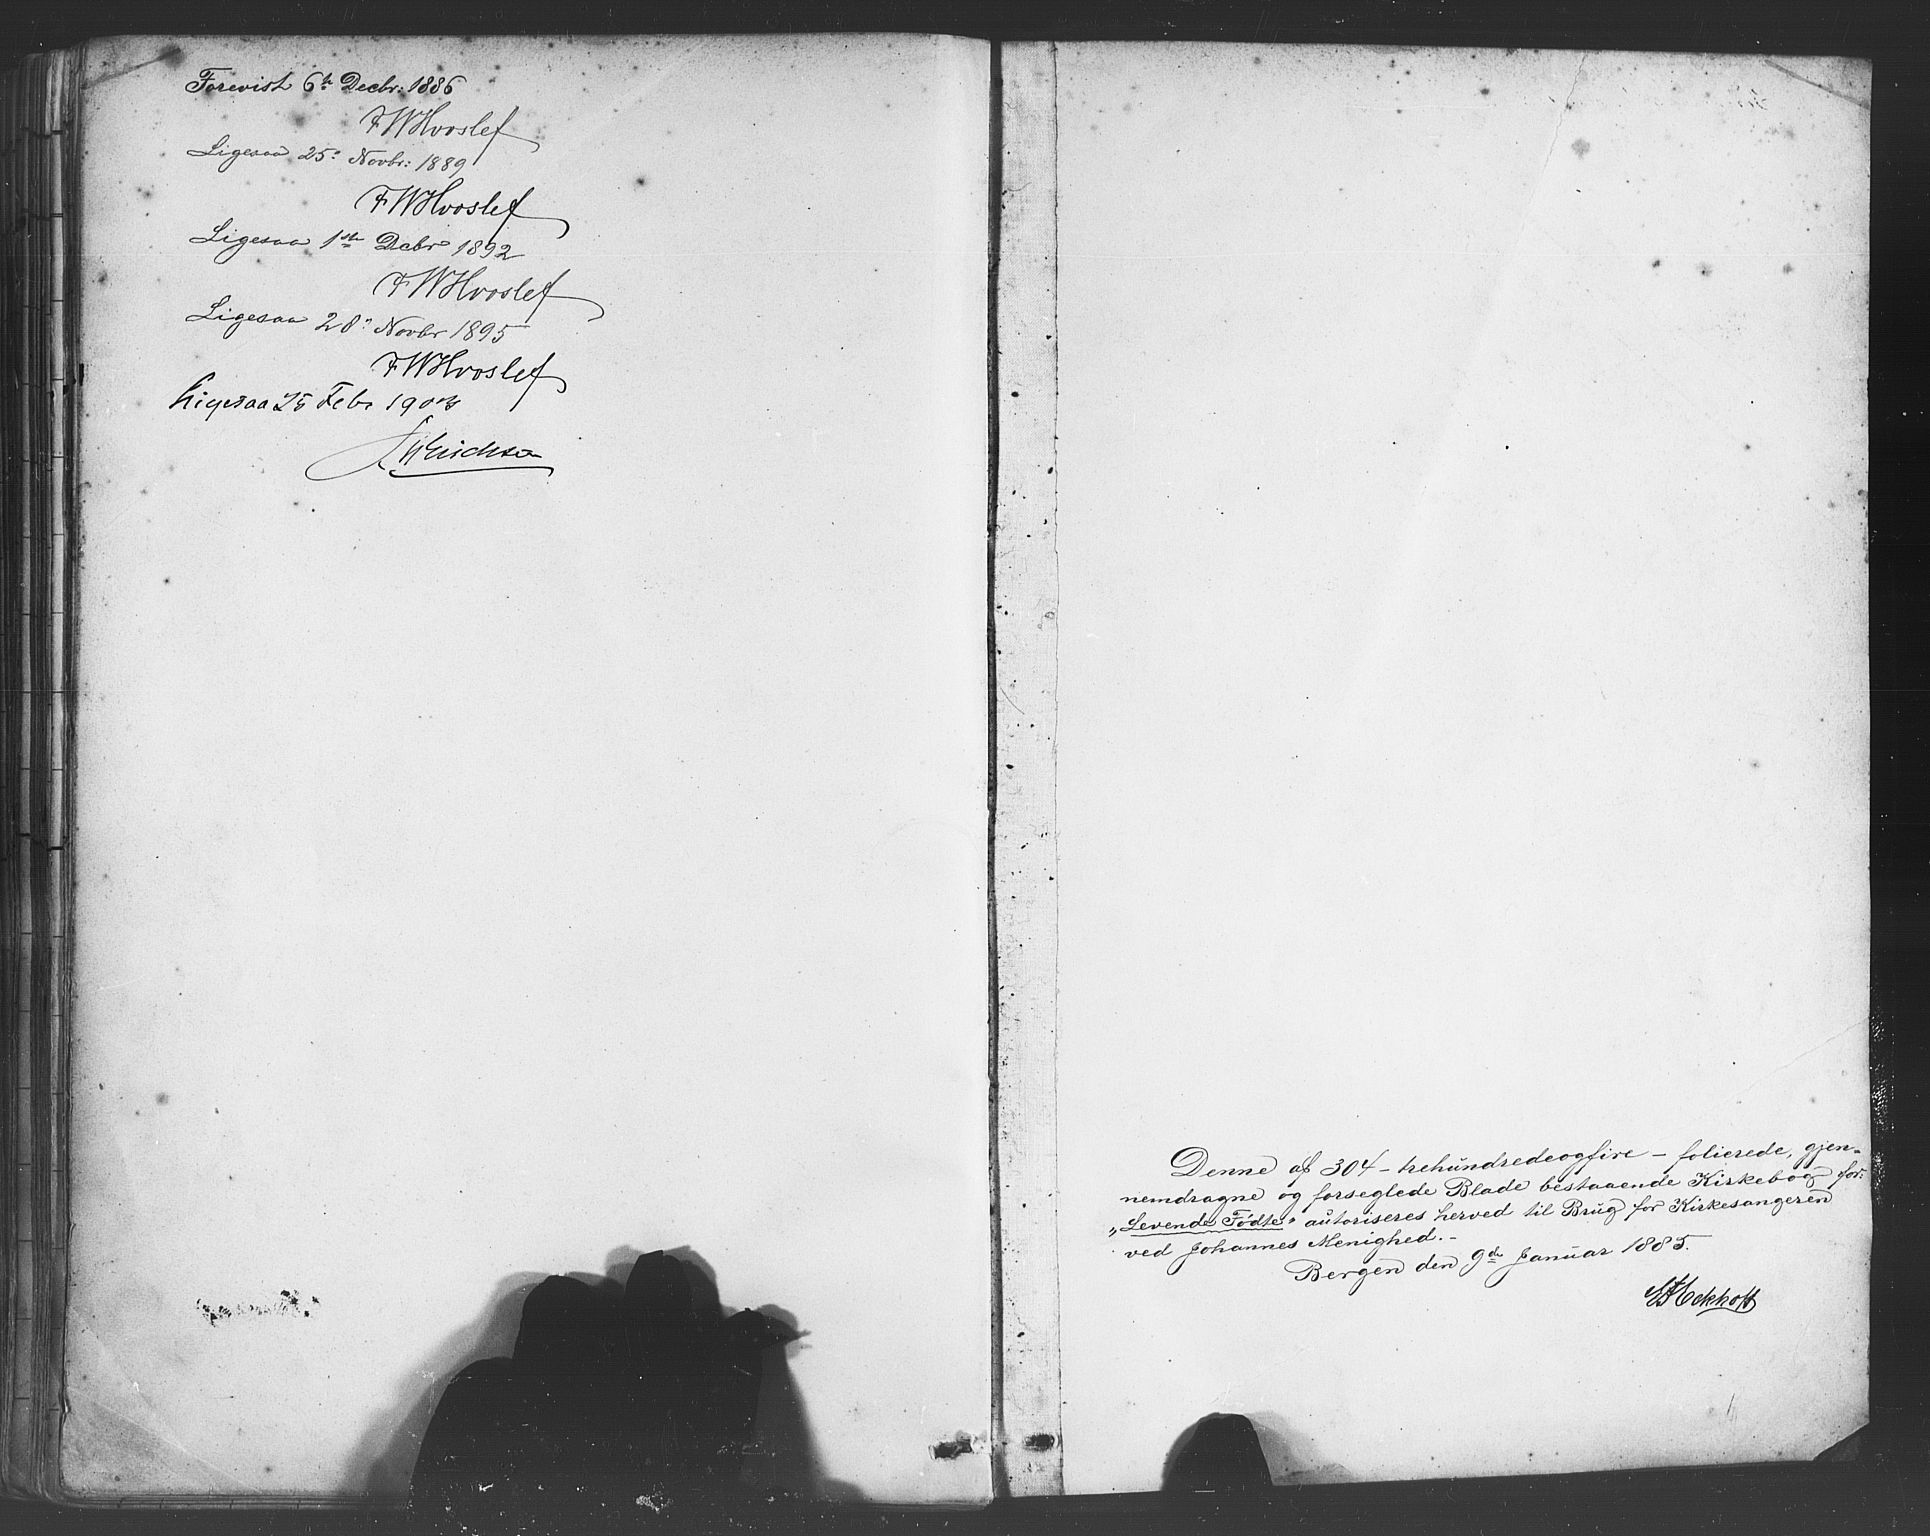 Forevist 6te Decbr: 1886
FWHvoslef
Ligesaa 25: Novbr: 1889
FWHvoslef
Ligesaa 1ste Dcbr 1892
FWHvoslef
Ligesaa 28: Novbr 1895
FWHvoslef
Ligesaa 25 Febr
Denne af 304 – trehundredeogfire – folierede, gjen-
nemdragne og forseglede Blade bestaaende Kirkebog for:
„Levende Fødte“ autoriseres herved til Brug for Kirkesangeren
ved Johannes Menighed. –
Bergen den 9de Januar 1885.
Eckhoff